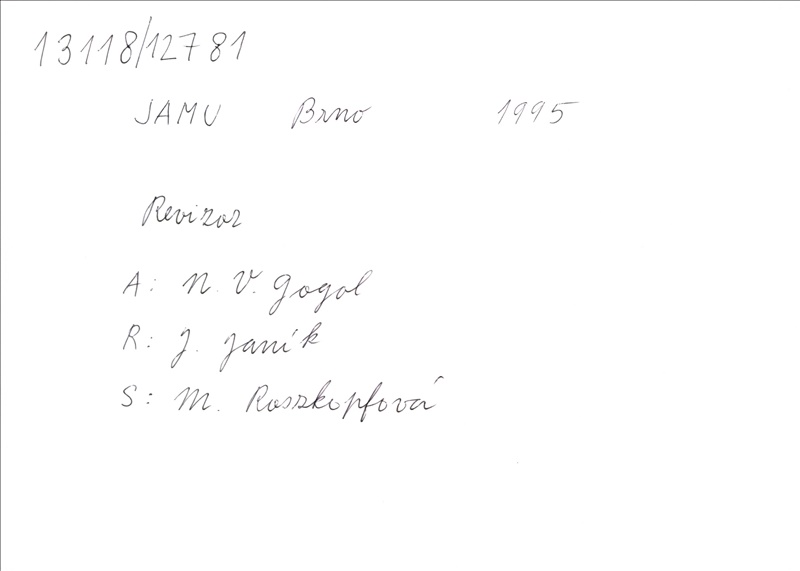 13118/12781
JAMU Brno 1995
Revizor
A: N. V. Gogol
R: J. Janík
S: M. Roszkopfová